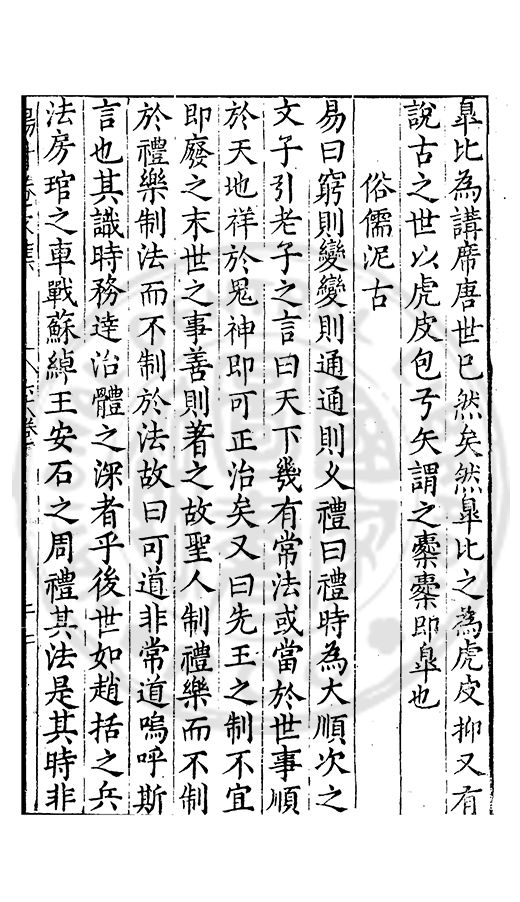 臯比為講席唐世已然矣然臯比之為虎皮抑又有
說古之世以虎皮包弓矢謂之櫜櫜即臯也
俗儒泥古
易曰窮則變變則通通則久禮曰禮時為大順次之
文子引老子之言曰天下幾有常法或當於世事順
於天地祥於鬼神即可正治矣又曰先王之制不宜
即廢之末世之事善則著之故聖人制禮樂而不制
於禮樂制法而不制於法故曰可道非常道嗚呼斯
言也其識時務達治體之深者乎後世如趙括之兵
法房琯之車戰蘇綽王安石之周禮其法是其時非